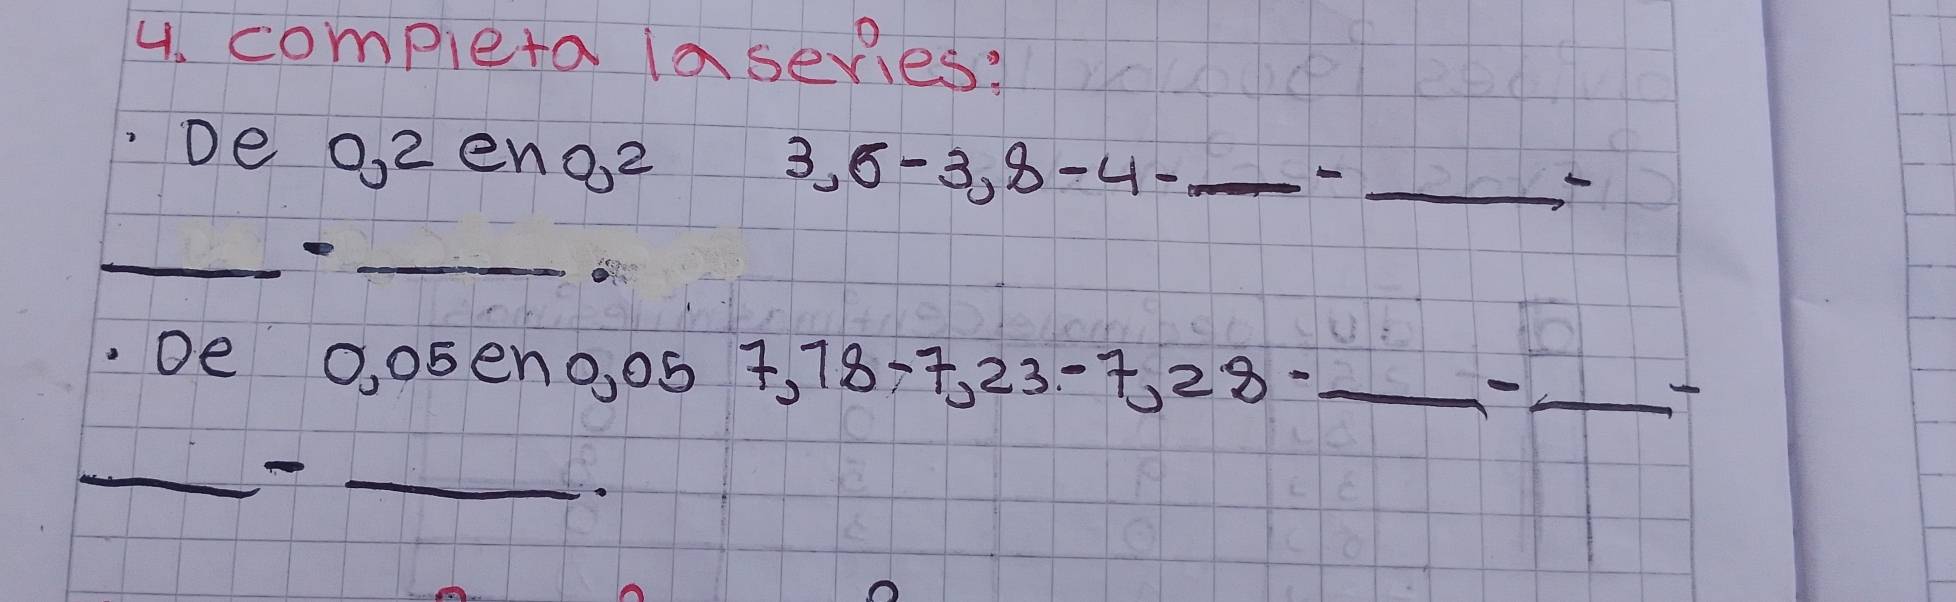 4. completa la series:
• De 0,2 en 0,2 3,6-3,8-4-___-___-
___-___.
• De 0,05 en 0,05 7,18-7,23-7,28-___-___-
___-___.